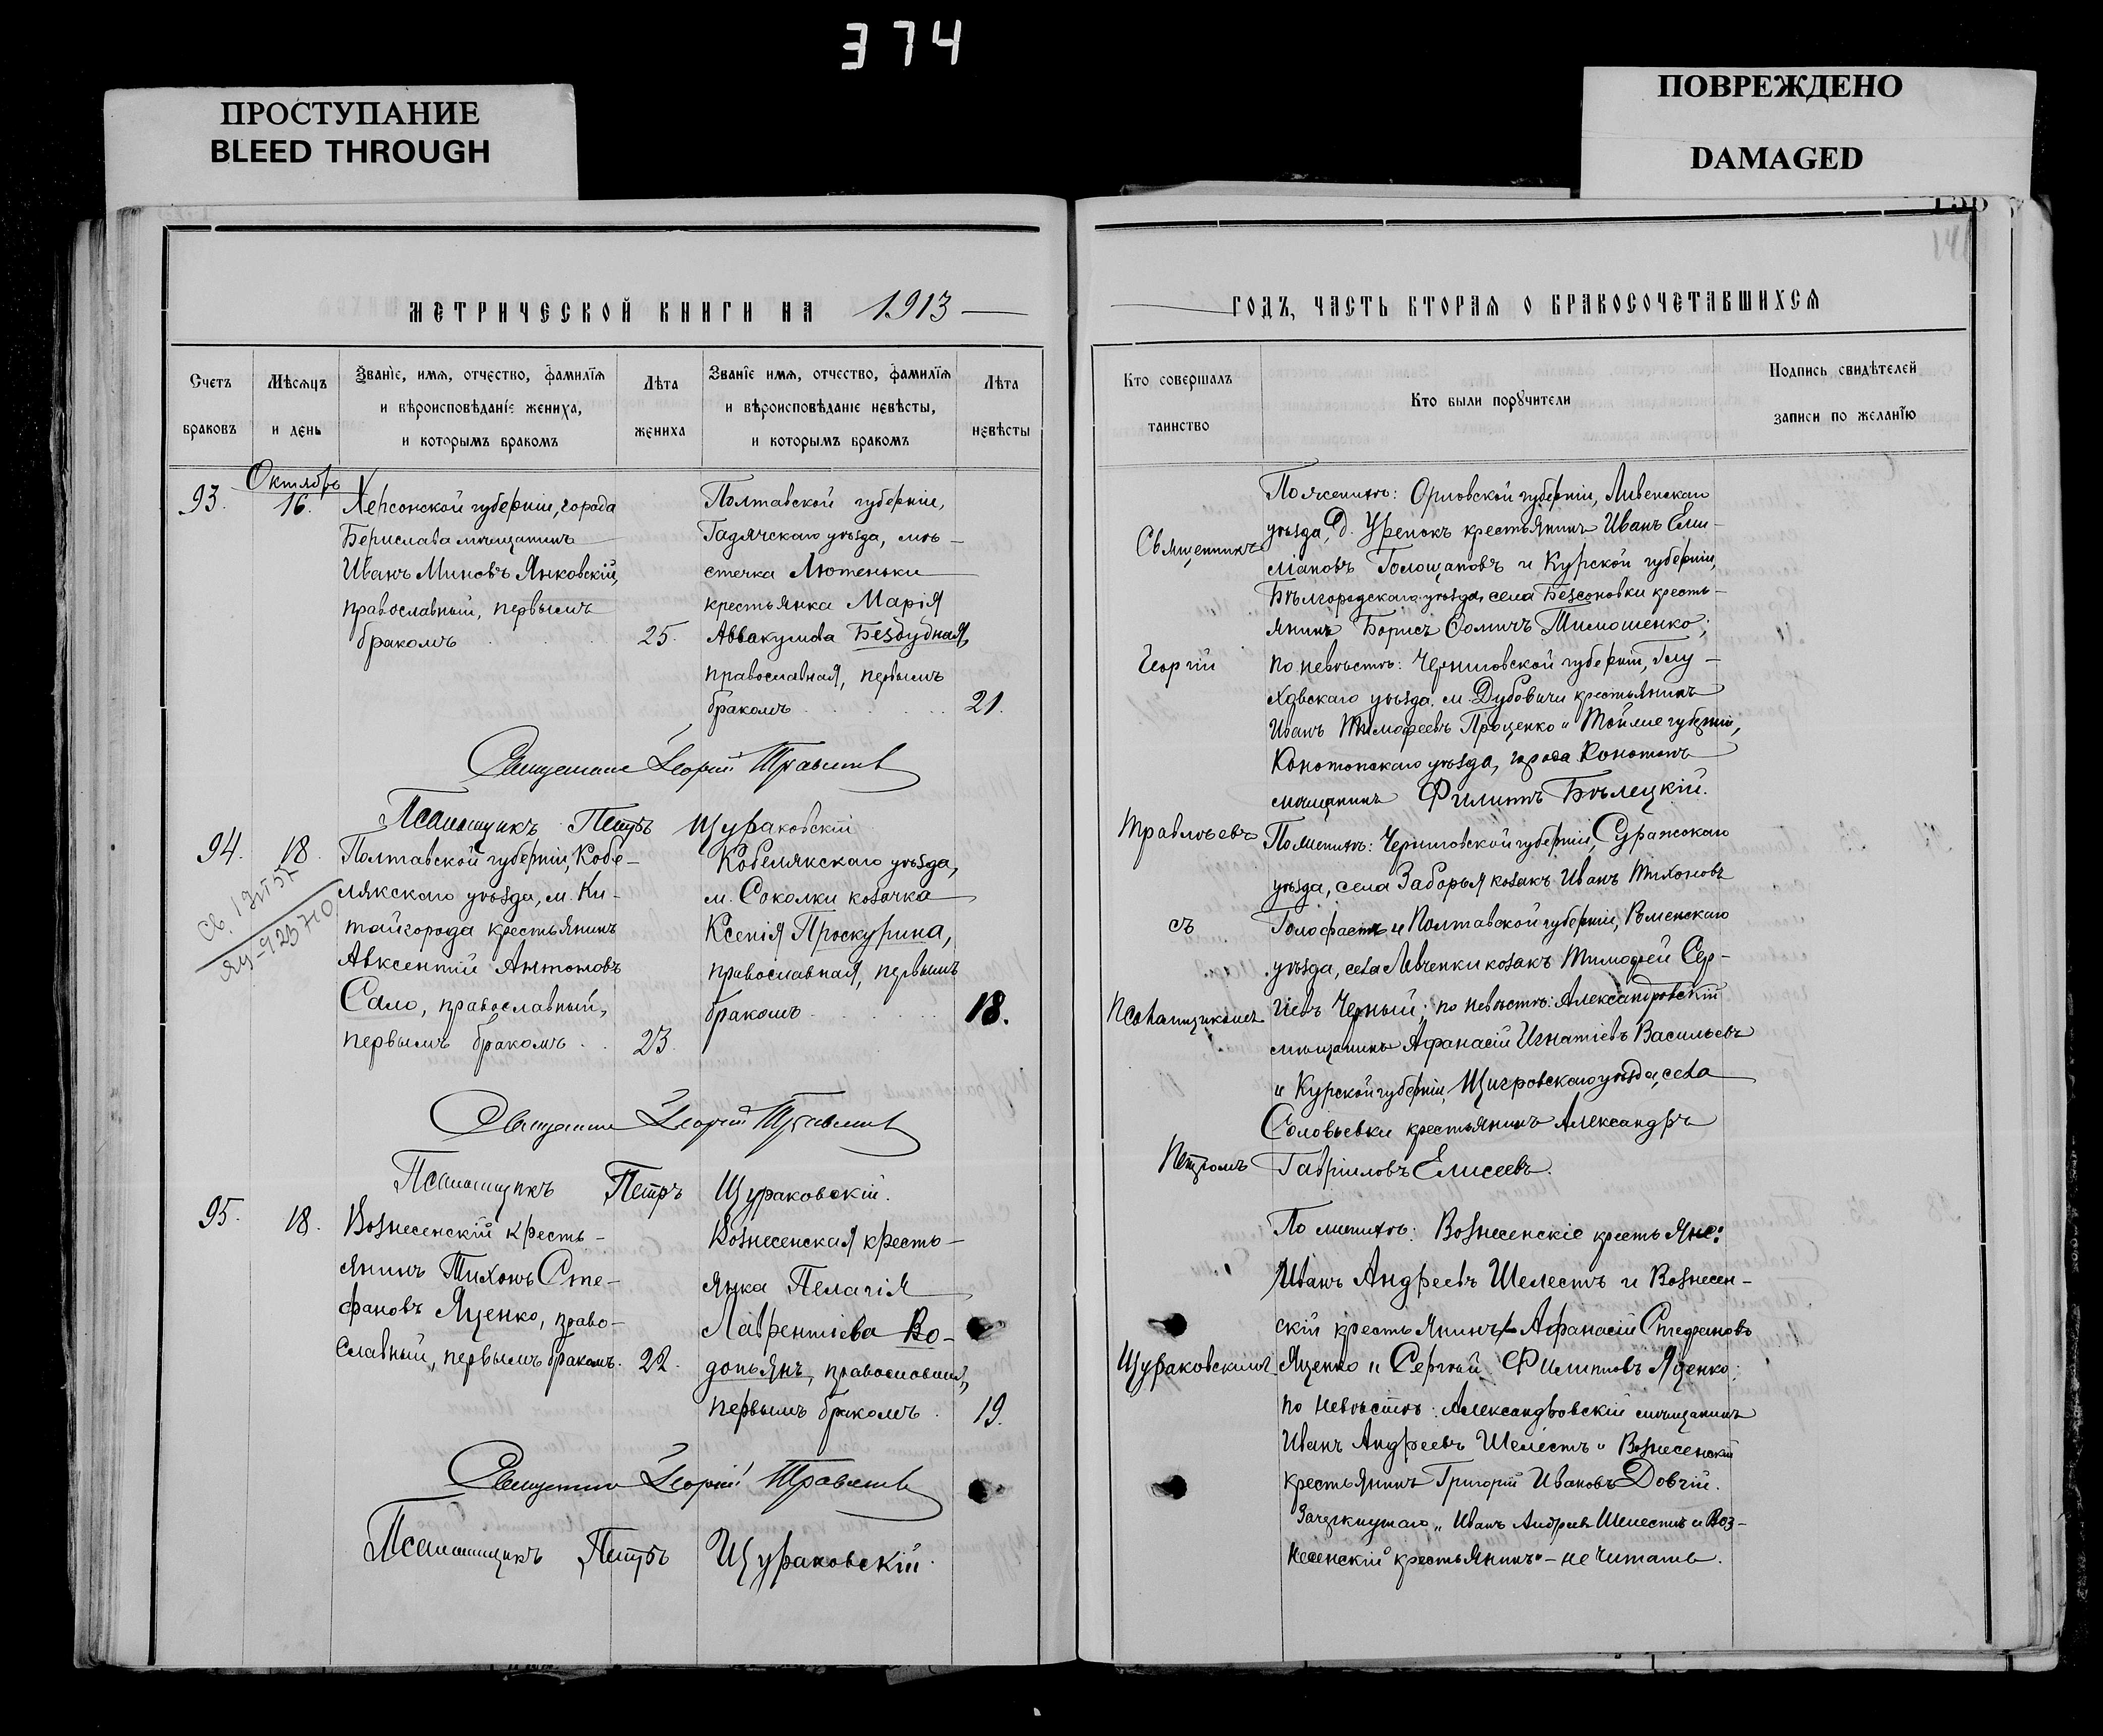 374
ПРОСТУПАНИЕ
BLEED THROUGH
ПОВРЕЖДЕНО
DAMAGED
141
МЕТРИЧЕСКОЙ КНИГИ НА 1913
Счетъ браковъ
Мѣсяцъ и день
Званіе, имя, отчество, фамилія
и вѣроисповѣданіе жениха,
и которымъ бракомъ
Лѣта жениха
Званіе имя, отчество, фамилія
и вѣроисповѣданіе невѣсты,
и которымъ бракомъ
Лѣта невѣсты
Октябрь
93.
16.
Херсонской губерніи, города
Берислава мѣщанинъ
Иванъ Миновъ Янковскій,
православный, первымъ
бракомъ
25.
Полтавской губерніи,
Гадячскаго уѣзда, мѣ-
стечка Лютеньки
крестьянка Марія
Аввакумова Безбудная,
православная, первымъ
бракомъ
21.
Священникъ Георгій Травлѣевъ
Псаломщикъ Петръ Щураковскій
94.
18.
Полтавской губерніи, Кобе-
лякскаго уѣзда, м. Ки-
тайгорода крестьянинъ
Авксентій Антоновъ
Сало, православный,
первымъ бракомъ
23.
Кобелякскаго уѣзда,
м. Соколки козачка
Ксенія Проскурина,
православная, первымъ
бракомъ
18.
Священникъ Георгій Травлѣевъ
Псаломщикъ Петръ Щураковскій.
95.
18.
Вознесенскій кресть-
янинъ Тихонъ Сте-
фановъ Яценко, право-
славный, первымъ бракомъ.
22.
Вознесенская кресть-
янка Пелагія
Лаврентіева Во-
допьянъ, православная,
первымъ бракомъ.
19.
Священникъ Георгій Травлѣевъ
Псаломщикъ Петръ Щураковскій.
ГОДЪ, ЧАСТЬ ВТОРАЯ О БРАКОСОЧЕТАВШИХСЯ
Кто совершалъ
таинство
Кто были порꙋчители
Подпись свидѣтелей
записи по желанію
Священникъ
Георгій
Травлѣевъ
съ
Псаломщикомъ
Петромъ
Щураковскимъ
По женихѣ: Орловской губерніи, Ливенскаго
уѣзда, д. Урепокъ крестьянинъ Иванъ Еми-
ліановъ Голощаповъ и Курской губерніи,
Бѣлгородскаго уѣзда, села Безсоновки кресть-
янинъ Борисъ Ѳомичъ Тимошенко;
по невѣстѣ: Черниговской губерніи, Глу-
ховскаго уѣзда, м. Дубовичи крестьянинъ
Иванъ Тимофеевъ Проценко и Той же губерніи,
Конотопскаго уѣзда, города Конотопъ
мѣщанинъ Филиппъ Бѣлецкій.
По женихѣ: Черниговской губерніи, Суражскаго
уѣзда, села Заборья козакъ Иванъ Тихоновъ
Голофастъ и Полтавской губерніи, Роменскаго
уѣзда, села Левченки козакъ Тимофей Сер-
гіевъ Черный; по невѣстѣ: Александровскій
мѣщанинъ Афанасій Игнатіевъ Васильевъ
и Курской губерніи, Щигровскаго уѣзда, села
Соловьевки крестьянинъ Александръ
Гавріиловъ Елисеевъ.
По женихѣ: Вознесенскіе крестьяне:
Иванъ Андреевъ Шелестъ и Вознесен-
скій крестьянинъ Афанасій Стефановъ
Яценко и Сергѣй Филипповъ Яценко;
по невѣстѣ: Александровскій мѣщанинъ
Иванъ Андреевъ Шелестъ и Вознесенскій
крестьянинъ Григорій Ивановъ Довгій.
Зачеркнутаго „Иванъ Андреевъ Шелестъ и Воз-
несенскій крестьянинъ" – не читать.